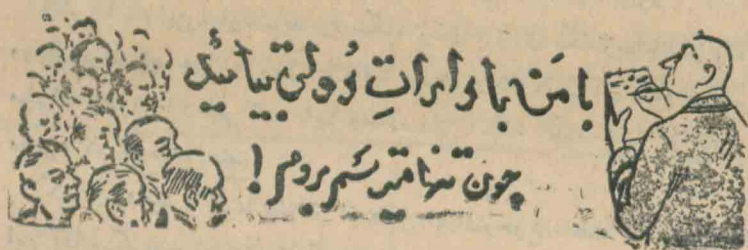 با من بادارات دولتی بیائید
چون تنها میترسم بروم!